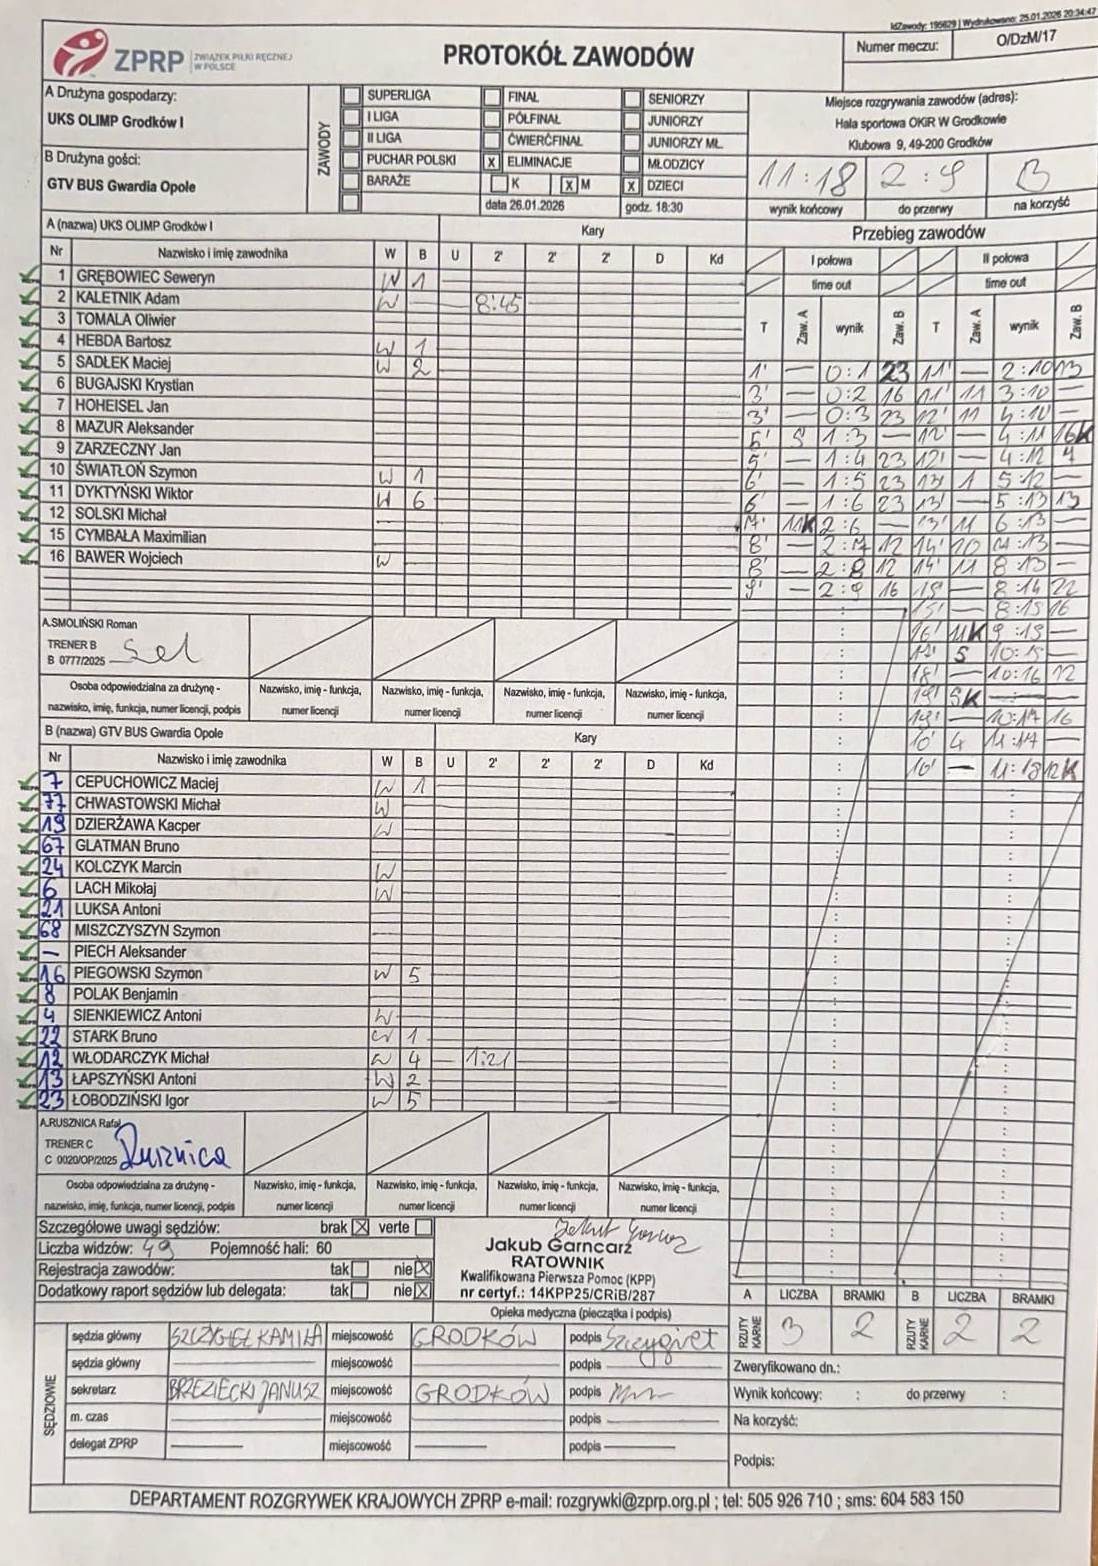 IdZawody: 195629 | Wydrukowano: 25.01.2026 20:34:47
ZPRP ZWIĄZEK PIŁKI RĘCZNEJ W POLSCE
PROTOKÓŁ ZAWODÓW
Numer meczu: O/DzM/17
A Drużyna gospodarzy:
UKS OLIMP Grodków I
B Drużyna gości:
GTV BUS Gwardia Opole
ZAWODY
SUPERLIGA FINAŁ SENIORZY
I LIGA PÓŁFINAŁ JUNIORZY
II LIGA ĆWIERĆFINAŁ JUNIORZY MŁ.
PUCHAR POLSKI X ELIMINACJE MŁODZICY
BARAŻE K X M X DZIECI
data 26.01.2026 godz. 18:30
Miejsce rozgrywania zawodów (adres):
Hala sportowa OKiR W Grodkowie
Klubowa 9, 49-200 Grodków
11:18 2:9 B
wynik końcowy do przerwy na korzyść
A (nazwa) UKS OLIMP Grodków I Kary
Nr Nazwisko i imię zawodnika W B U 2' 2' 2' D Kd
1 GRĘBOWIEC Seweryn W 1
2 KALETNIK Adam W 8:45
3 TOMALA Oliwier
4 HEBDA Bartosz W 1
5 SADŁEK Maciej W 2
6 BUGAJSKI Krystian
7 HOHEISEL Jan
8 MAZUR Aleksander
9 ZARZECZNY Jan
10 ŚWIATŁOŃ Szymon W 1
11 DYKTYŃSKI Wiktor W 6
12 SOLSKI Michał
15 CYMBAŁA Maximilian
16 BAWER Wojciech W
A.SMOLIŃSKI Roman
TRENER B
B 0777/2025
Osoba odpowiedzialna za drużynę - nazwisko, imię, funkcja, numer licencji, podpis
Nazwisko, imię - funkcja, numer licencji
Nazwisko, imię - funkcja, numer licencji
Nazwisko, imię - funkcja, numer licencji
Nazwisko, imię - funkcja, numer licencji
B (nazwa) GTV BUS Gwardia Opole Kary
Nr Nazwisko i imię zawodnika W B U 2' 2' 2' D Kd
7 CEPUCHOWICZ Maciej W 1
77 CHWASTOWSKI Michał W
19 DZIERŻAWA Kacper W
67 GLATMAN Bruno
24 KOLCZYK Marcin W
6 LACH Mikołaj W
21 LUKSA Antoni
68 MISZCZYSZYN Szymon
— PIECH Aleksander
16 PIEGOWSKI Szymon W 5
8 POLAK Benjamin
4 SIENKIEWICZ Antoni W
22 STARK Bruno W 1
12 WŁODARCZYK Michał W 4 — 1:21
13 ŁAPSZYŃSKI Antoni W 2
23 ŁOBODZIŃSKI Igor W 5
A.RUSZNICA Rafał
TRENER C
C 0020/OP/2025 Rusznica
Osoba odpowiedzialna za drużynę - nazwisko, imię, funkcja, numer licencji, podpis
Nazwisko, imię - funkcja, numer licencji
Nazwisko, imię - funkcja, numer licencji
Nazwisko, imię - funkcja, numer licencji
Nazwisko, imię - funkcja, numer licencji
Przebieg zawodów
I połowa II połowa
time out time out
T Zaw. A wynik Zaw. B T Zaw. A wynik Zaw. B
1' — 0:1 23 11' — 2:10 13
3' — 0:2 16 11' 11 3:10 —
3' — 0:3 23 12' 11 4:10 —
5' 5 1:3 — 12' — 4:11 16K
5' — 1:4 23 12' — 4:12 7
6' — 1:5 23 13' 1 5:12 —
6' — 1:6 23 13' — 5:13 13
7' 11K 2:6 — 13' 11 6:13 —
8' — 2:7 12 14' 10 7:13 —
8' — 2:8 12 14' 11 8:13 —
9' — 2:9 16 15' — 8:14 22
15' — 8:15 16
16' 11K 9:15 —
17' 5 10:15 —
18' — 10:16 12
19' 5K —
19' — 10:17 16
10' 4 11:17 —
10' — 11:18 12K
Szczegółowe uwagi sędziów: brak X verte
Liczba widzów: 49 Pojemność hali: 60
Rejestracja zawodów: tak nie X
Dodatkowy raport sędziów lub delegata: tak nie X
Jakub Garncarz
RATOWNIK
Kwalifikowana Pierwsza Pomoc (KPP)
nr certyf.: 14KPP25/CRiB/287
Opieka medyczna (pieczątka i podpis)
A LICZBA BRAMKI B LICZBA BRAMKI
RZUTY KARNE 3 2 RZUTY KARNE 2 2
SĘDZIOWIE
sędzia główny SZCZYGIEŁ KAMILA miejscowość GRODKÓW podpis Szczygieł
sędzia główny — miejscowość — podpis —
sekretarz BRZEZIECKI JANUSZ miejscowość GRODKÓW podpis
m. czas — miejscowość — podpis —
delegat ZPRP — miejscowość — podpis —
Zweryfikowano dn.:
Wynik końcowy: : do przerwy :
Na korzyść:
Podpis:
DEPARTAMENT ROZGRYWEK KRAJOWYCH ZPRP e-mail: rozgrywki@zprp.org.pl ; tel: 505 926 710 ; sms: 604 583 150